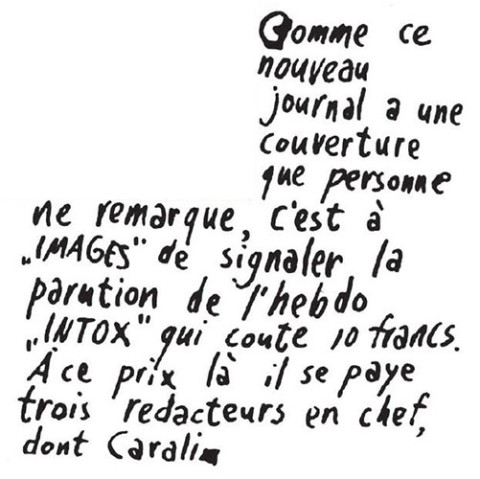 Comme ce
nouveau
journal a une
couverture
que personne
ne remarque, c'est à
„IMAGES" de signaler la
parution de l'hebdo
„INTOX" qui coute 10 francs.
À ce prix là il se paye
trois redacteurs en chef,
dont Carali